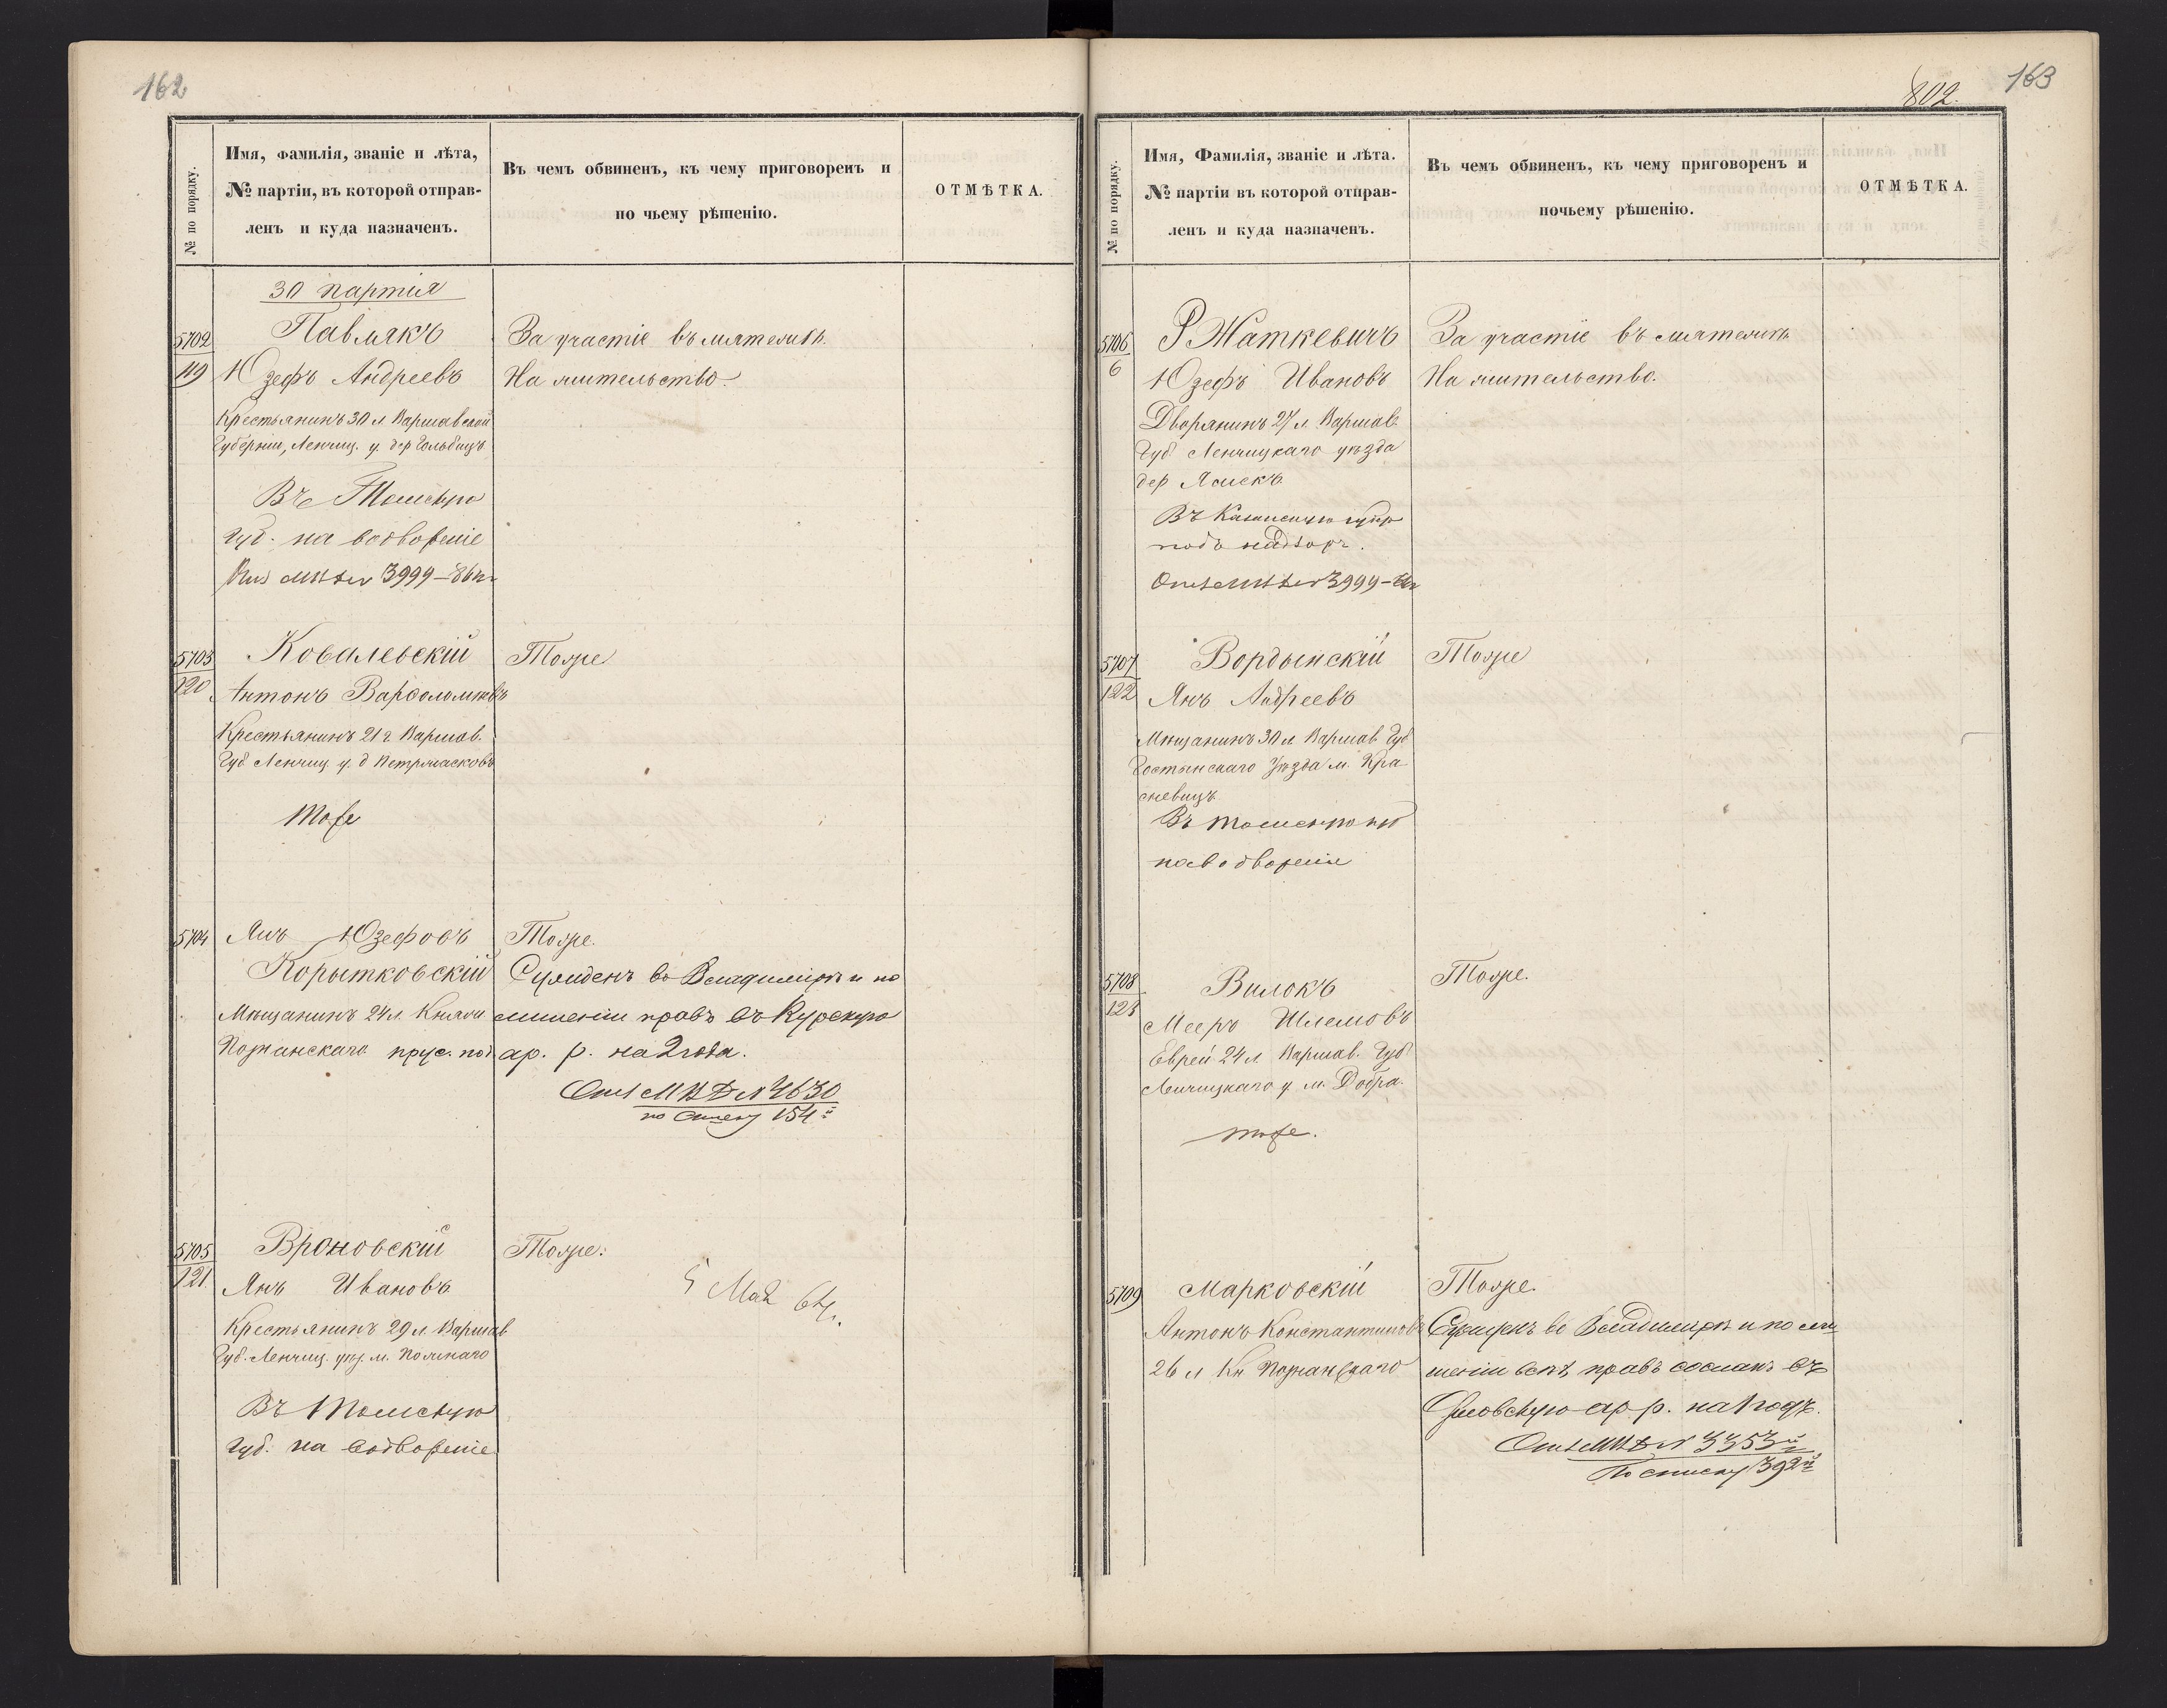 162
№ по порядку.
Имя, фамилія, званіе и лѣта,
№ партіи, въ которой отправ-
ленъ и куда назначенъ.
Въ чемъ обвиненъ, къ чему приговоренъ и
по чьему рѣшенію.
ОТМѢТКА.
30 партия
5702
119
Павлякъ
Юзефъ Андреевъ
Крестьянинъ 30 л Варшавской
Губерніи, Ленчиц. у. дер
Въ Томскую
Губ. на водвореніе
3999
За участіе въ мятежѣ.
На жительство.
5703
120
Ковалевскій
Антонъ Варфоломѣевъ
Крестьянинъ 21 г. Варшав.
Губ Ленчиц у. д
Тоже
Тоже
5704
Янъ Юзефовъ
Корытковскій
Мѣщанинъ 24 л. Княж
Познанскаго прус. под
Тоже.
Сужденъ во Владимірѣ и по
лишеніи правъ въ Курскую
ар. р. на 2 года.
Отн МВД № 4630
по списку 154
5705
121.
Вроновскій
Янъ Ивановъ
Крестьянинъ 29 л. Варшав
Губ. Ленчиц. уѣз. м.
Въ Томскую
Губ. на водвореніе
Тоже:
5 Мая 64 г.
163
802.
№ по порядку.
Имя, Фамилія, званіе и лѣта.
№ партіи въ которой отправ-
ленъ и куда назначенъ.
Въ чемъ обвиненъ, къ чему приговоренъ и
почьему рѣшенію.
ОТМѢТКА.
5706
6
Р Жаткевичъ
Юзефъ Ивановъ
Дворянинъ 27 л. Варшав.
Губ Ленчицкаго уѣзда
дер
Въ
подъ надзоръ.
3999
За участіе въ мятежѣ
На жительство.
5707
122
Вордынскій
Янъ Андреевъ
Мѣщанинъ 30 л Варшав Губ
Гостынскаго Уѣзда м. Кра
сневицъ
Въ Томскую губ
на водвореніе
Тоже
5708
123
Вилокъ
Мееръ Шлемовъ
Еврей 24 л Варшав. Губ
Ленчицкаго у. м. Добра.
тоже.
Тоже.
5709
Марковскій
Антонъ Константиновъ
26 л Кн Познанскаго
Тоже.
Сужденъ во Владимірѣ и по ли
шеніи всѣхъ правъ сосланъ въ
Орловскую ар. р. на 1 годъ.
Отн МВД № 3353
По списку 392й